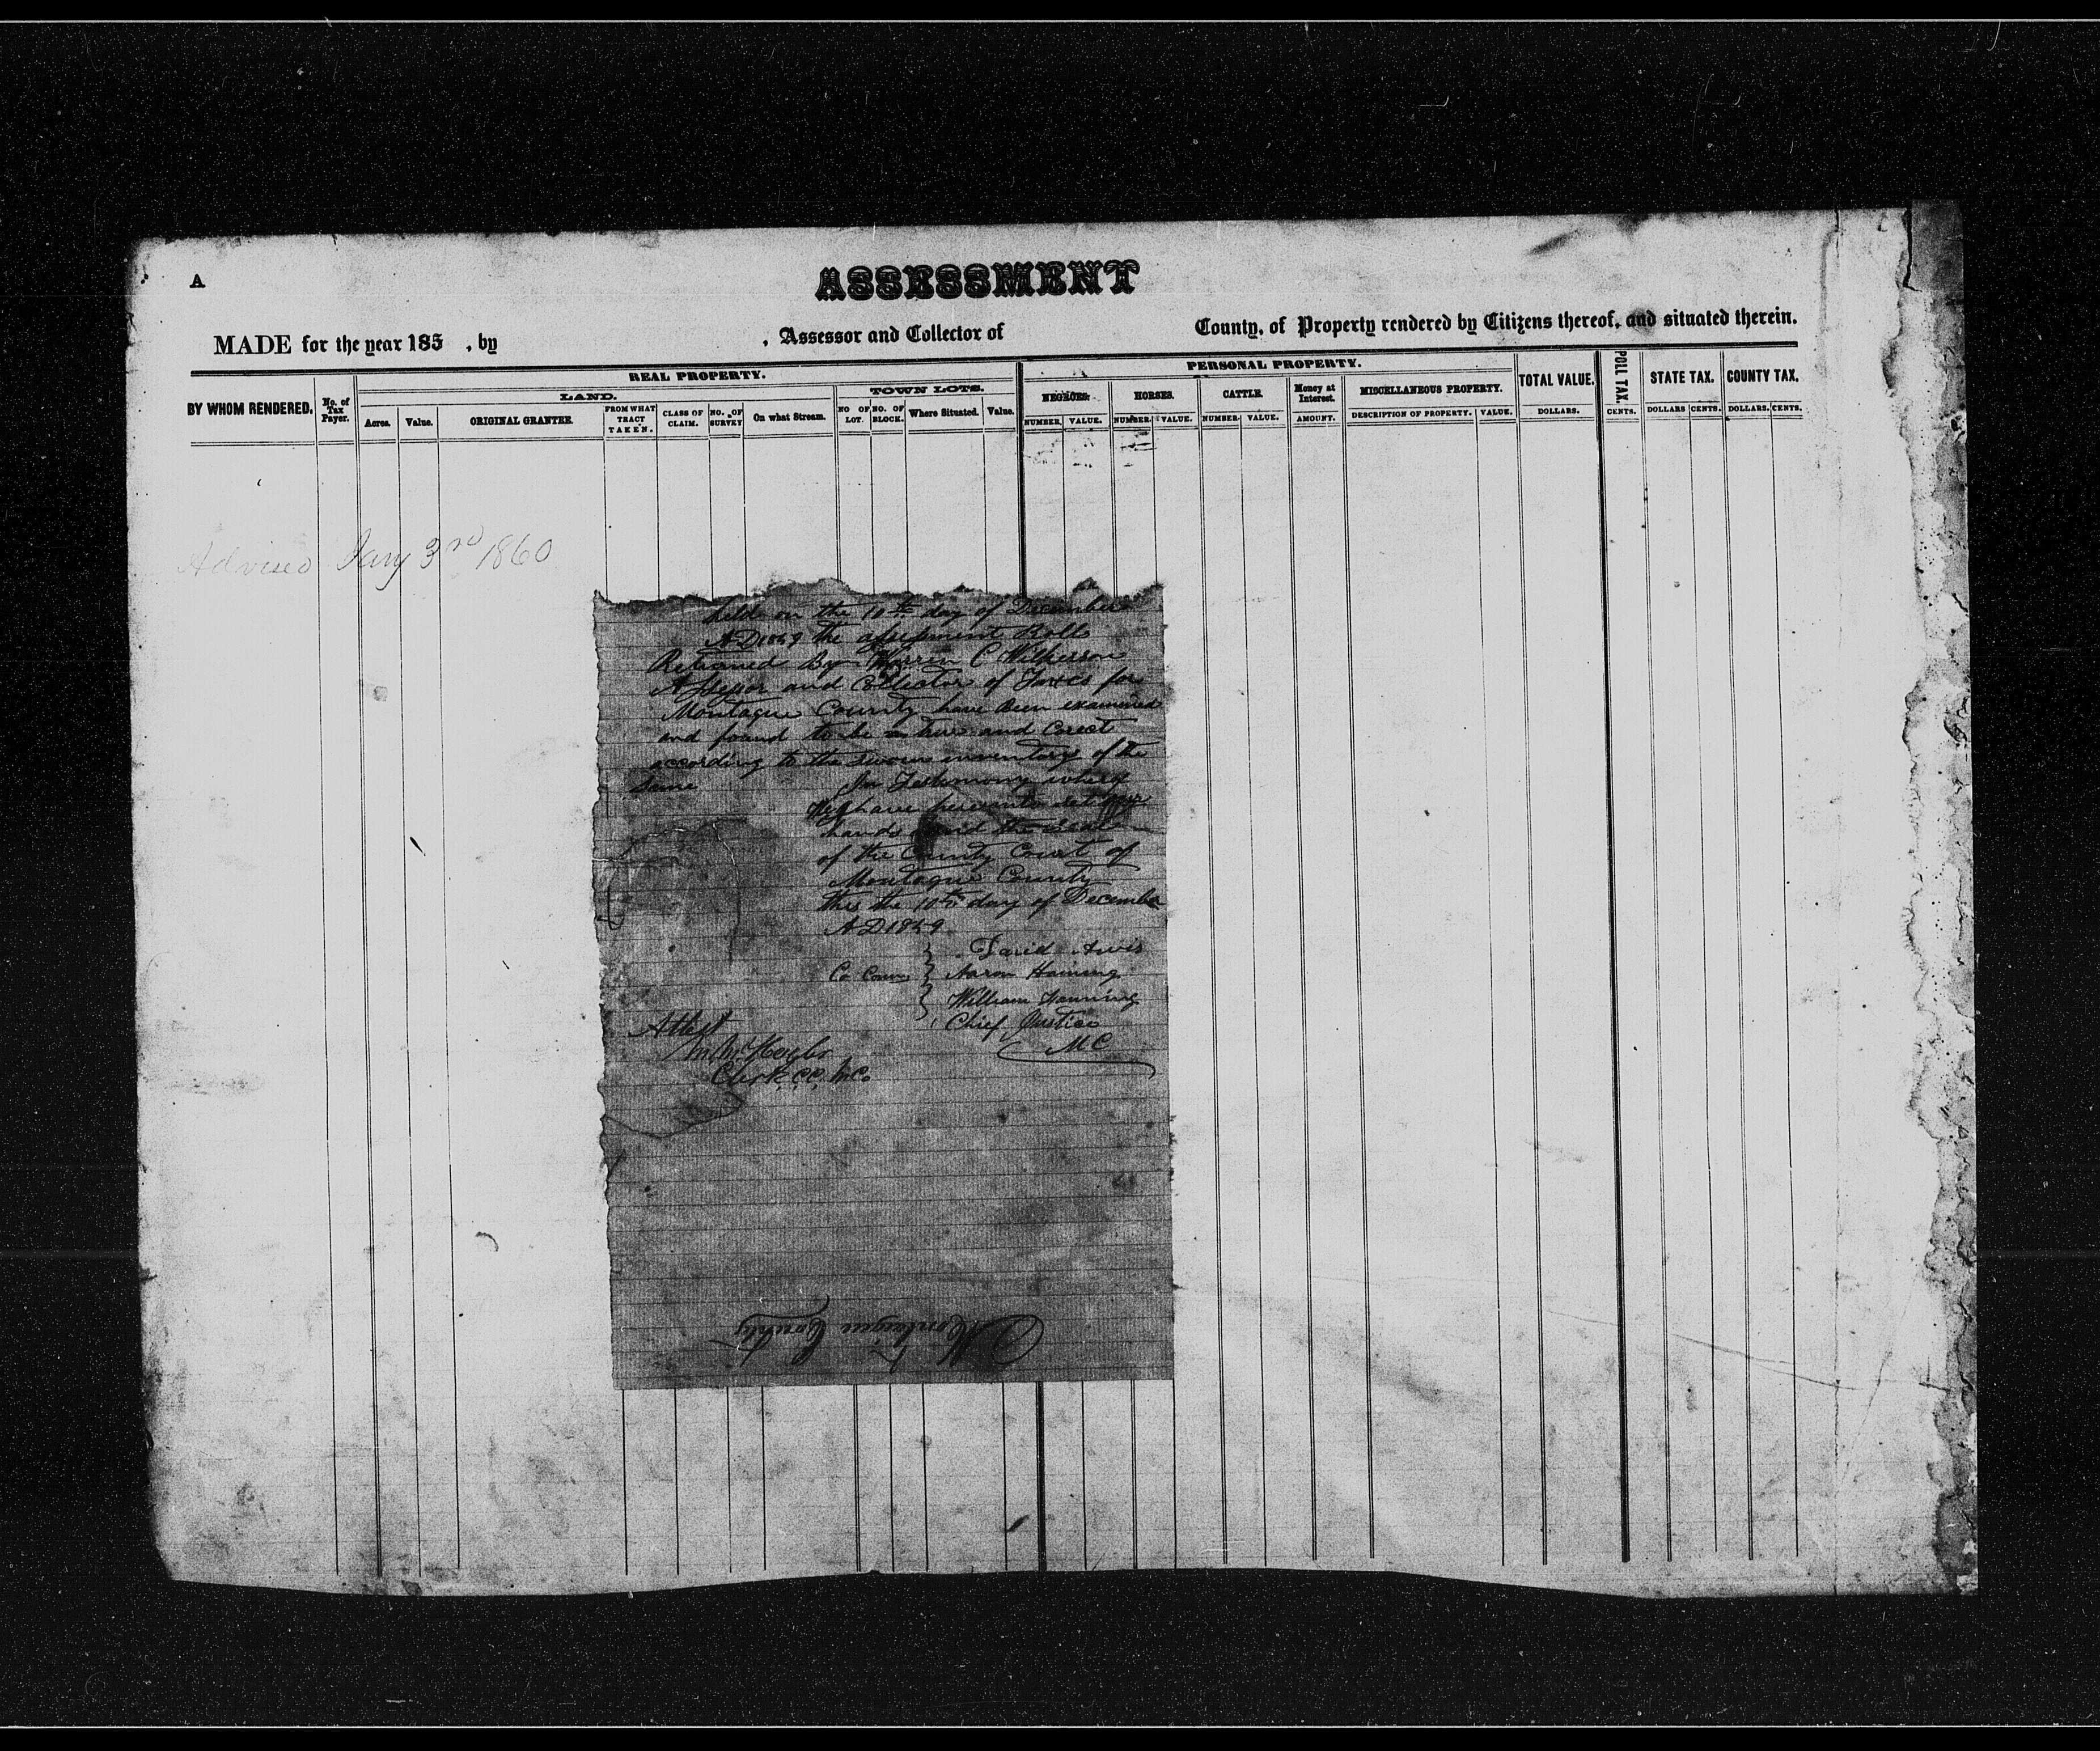 A
ASSESSMENT
MADE for the year 185 , by , Assessor and Collector of County, of Property rendered by Citizens thereof, and situated therein.
REAL PROPERTY. PERSONAL PROPERTY.
LAND. TOWN LOTS.
BY WHOM RENDERED. No. of Tax Payer. Acres. Value. ORIGINAL GRANTEE. FROM WHAT TRACT TAKEN. CLASS OF CLAIM. NO. OF SURVEY On what Stream. NO OF LOT. NO. OF BLOCK. Where Situated. Value. NEGROES. NUMBER. VALUE. HORSES. NUMBER. VALUE. CATTLE. NUMBER. VALUE. Money at Interest. AMOUNT. MISCELLANEOUS PROPERTY. DESCRIPTION OF PROPERTY. VALUE. TOTAL VALUE. DOLLARS. POLL TAX. CENTS. STATE TAX. DOLLARS CENTS. COUNTY TAX. DOLLARS. CENTS.
Advised Jany 3rd 1860
held on the 10th day of December
AD 1859 the assessment Roll
Returned By Warren C Wilkerson
Assessor and Collector of Taxes for
Montague County have been examined
and found to be true and Corect
according to the sworn inventory of the
Same In Testimony whereof
We have hereunto set our
hands and the Seal
of the County Court of
Montague County
this the 10th day of December
AD 1859
David Avis
Co Com Aaron Haining
William Fanning
Chief Justice
Attest MC
Clerk C.C. M.Co.
Montague County